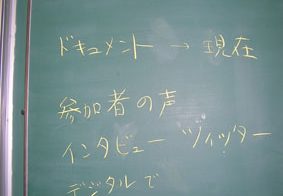 ドキュメント → 現在
参加者の声
インタビュー ツイッター
デジタルで